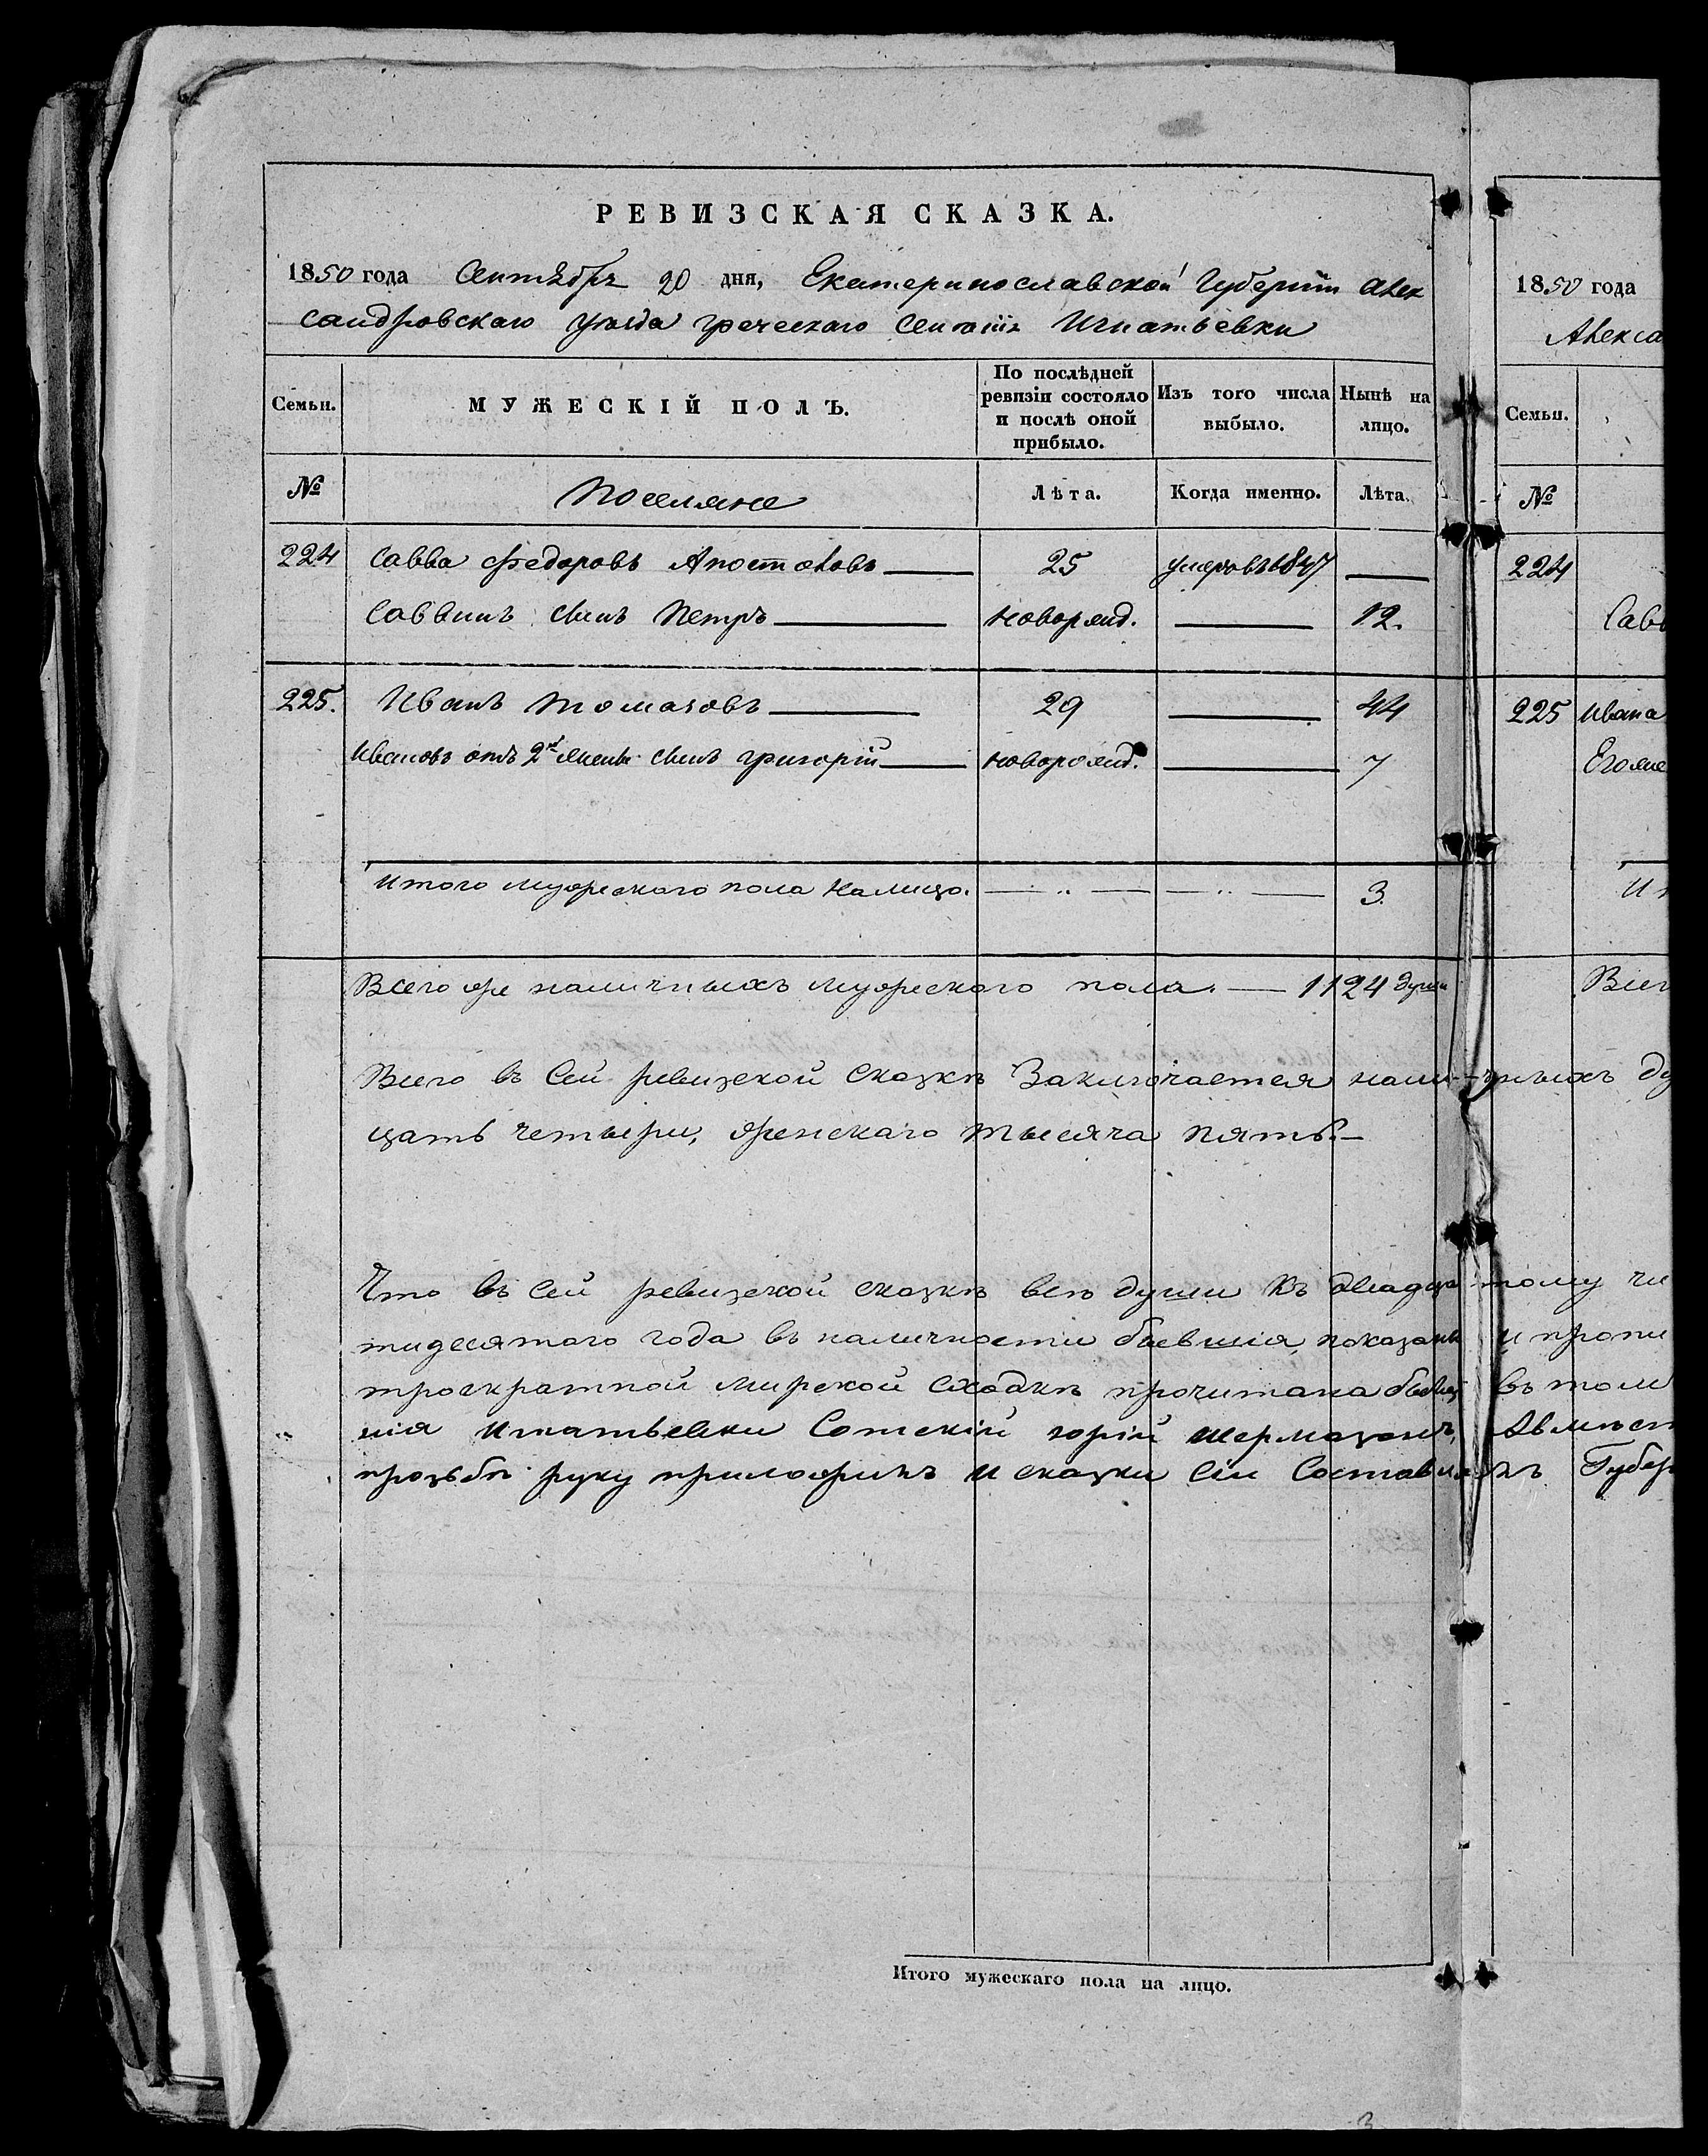 РЕВИЗСКАЯ СКАЗКА.
1850 года Сентября 20 дня, Екатеринославской Губерніи Алек
сандровскаго уѣзда греческаго селенія Игнатьевки
Семьи. МУЖЕСКІЙ ПОЛЪ. По послѣдней ревизіи состояло и послѣ оной прибыло. Изъ того числа выбыло. Нынѣ на лицо.
№ Поселяне Лѣта. Когда именно. Лѣта.
224 Савва Федоровъ Апостоловъ 25 умеръ въ 1847
Саввинъ сынъ Петръ новорожд. 12.
225. Иванъ Томазовъ 29 44
Ивановъ отъ 2й жены сынъ григорій новорожд. 7
Итого мужескаго пола на лицо. 3.
Всего же наличныхъ мужескаго пола. 1124 души
Всего въ сей ревизской сказкѣ Заключается наличныхъ ду
цать четыри, женскаго тысяча пять.
Что въ сей ревизской сказкѣ всѣ души къ двадцатому чи
тидесятаго года въ наличности бывшія, показаны и пропи
троекратной мирской сходкѣ прочитана была въ том
нія Игнатьевки Сотскій юрій шермазанъ,
прозьбѣ руку приложилъ и сказки сіи Составлялъ Губер
Итого мужескаго пола на лицо.
1850 года
Алекса
Семьи.
№
224
Савв
225 Ивана
Его же
Ит
Всег
3